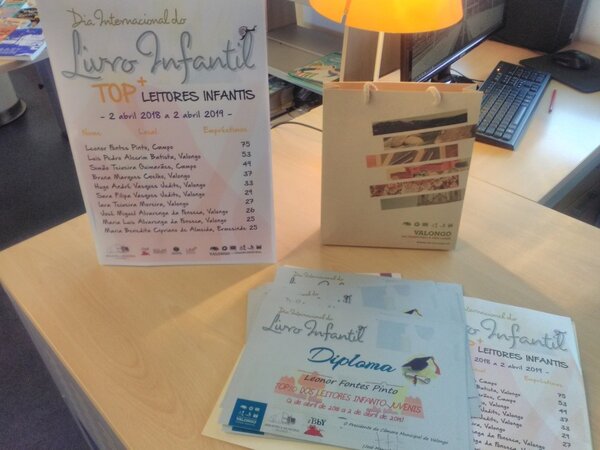 Dia Internacional do
Livro Infantil
TOP+ LEITORES INFANTIS
- 2 abril 2018 a 2 abril 2019 -
Nome Local Empréstimos
Leonor Fontes Pinto, Campo 75
Luís Pedro Alecrim Batista, Valongo 53
Simão Teixeira Guimarães, Campo 49
Bruna Marques Coelho, Valongo 37
Hugo André Vasques Judito, Valongo 33
Sara Filipa Vasques Judito, Valongo 29
Iara Teixeira Moreira, Valongo 27
José Miguel Alvarenga da Fonseca, Valongo 26
Maria Luís Alvarenga da Fonseca, Valongo 25
Maria Benedita Cipriano de Almeida, Ermesinde 25
VALONGO
VALONGO
Dia Internacional do
Livro Infantil
Diploma
Leonor Fontes Pinto
TOP10 DOS LEITORES INFANTO-JUVENIS
(2 de abril de 2018 a 2 de abril de 2019)
O Presidente da Câmara Municipal de Valongo
VALONGO
IBBY
Livro Infantil
LEITORES INFANTIS
2018 a 2 abril 2019 -
Empréstimos
Campo 75
Batista, Valongo 53
Campo 49
Valongo 37
Judito, Valongo 33
Judito, Valongo 29
Valongo 27
da Fonseca, Valongo 26
da Fonseca, Valongo 25